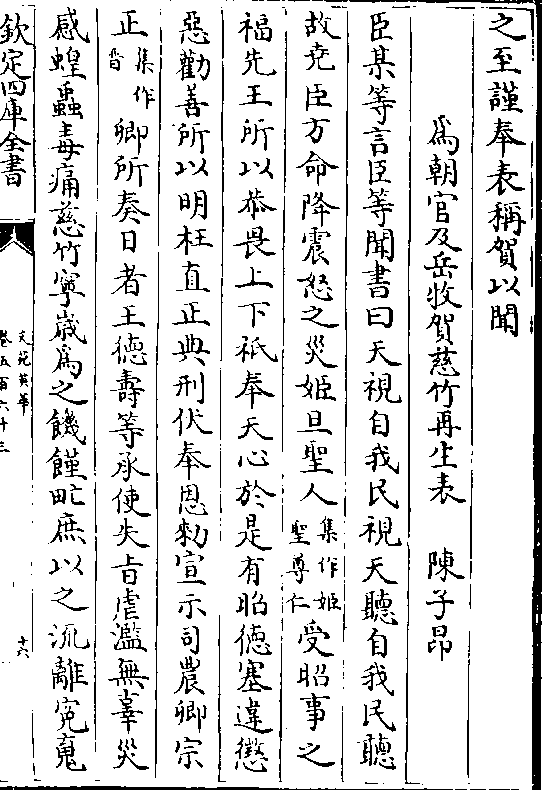 之至謹奉表稱賀以聞
爲朝官及岳牧賀慈竹再生表　陳子昂
臣某等言臣等聞書曰天視自我民視天聽自我民聽
故堯臣方命降震怒之災姬旦聖人集作姬聖尊仁受昭事之
福先王所以恭畏上下祇奉天心於是有昭德塞違懲
惡勸善所以明枉直正典刑伏奉恩勅宣示司農卿宗
正集作晉卿所奏日者王德壽等承使失旨虐濫無辜災
感蝗蟲毒痛慈竹寧歲爲之饑饉甿庶以之流離寃䰟
欽定四庫全書
文苑英華
卷五百六十三
十六